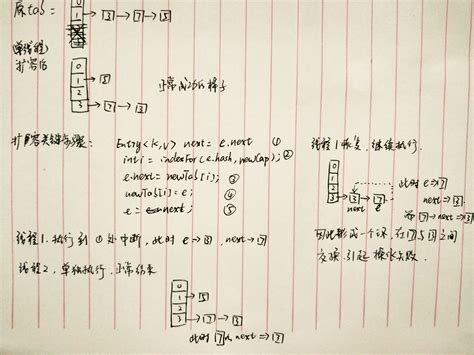 原tab:
0
1 → 3 → 7 → 5
(单线程)
扩容后
0
1 → 5
2
3 → 7 → 3
正常成功的样子
扩容关键步骤:
Entry<K,V> next = e.next ①
int i = indexFor(e.hash, newCap); ②
e.next = newTab[i]; ③
newTab[i] = e; ④
e = next; ⑤
线程1.执行到①处中断,此时 e→3, next→7
线程2,单独执行,正常结果
0
1 → 5
2
3 → 7 → 3
此时7的next→3
线程1恢复,继续执行.
0
1
2
3 → 3 → 7
next e
此时 e→7
next→3
而7→next→3
因此形成一个环,在7与3之间